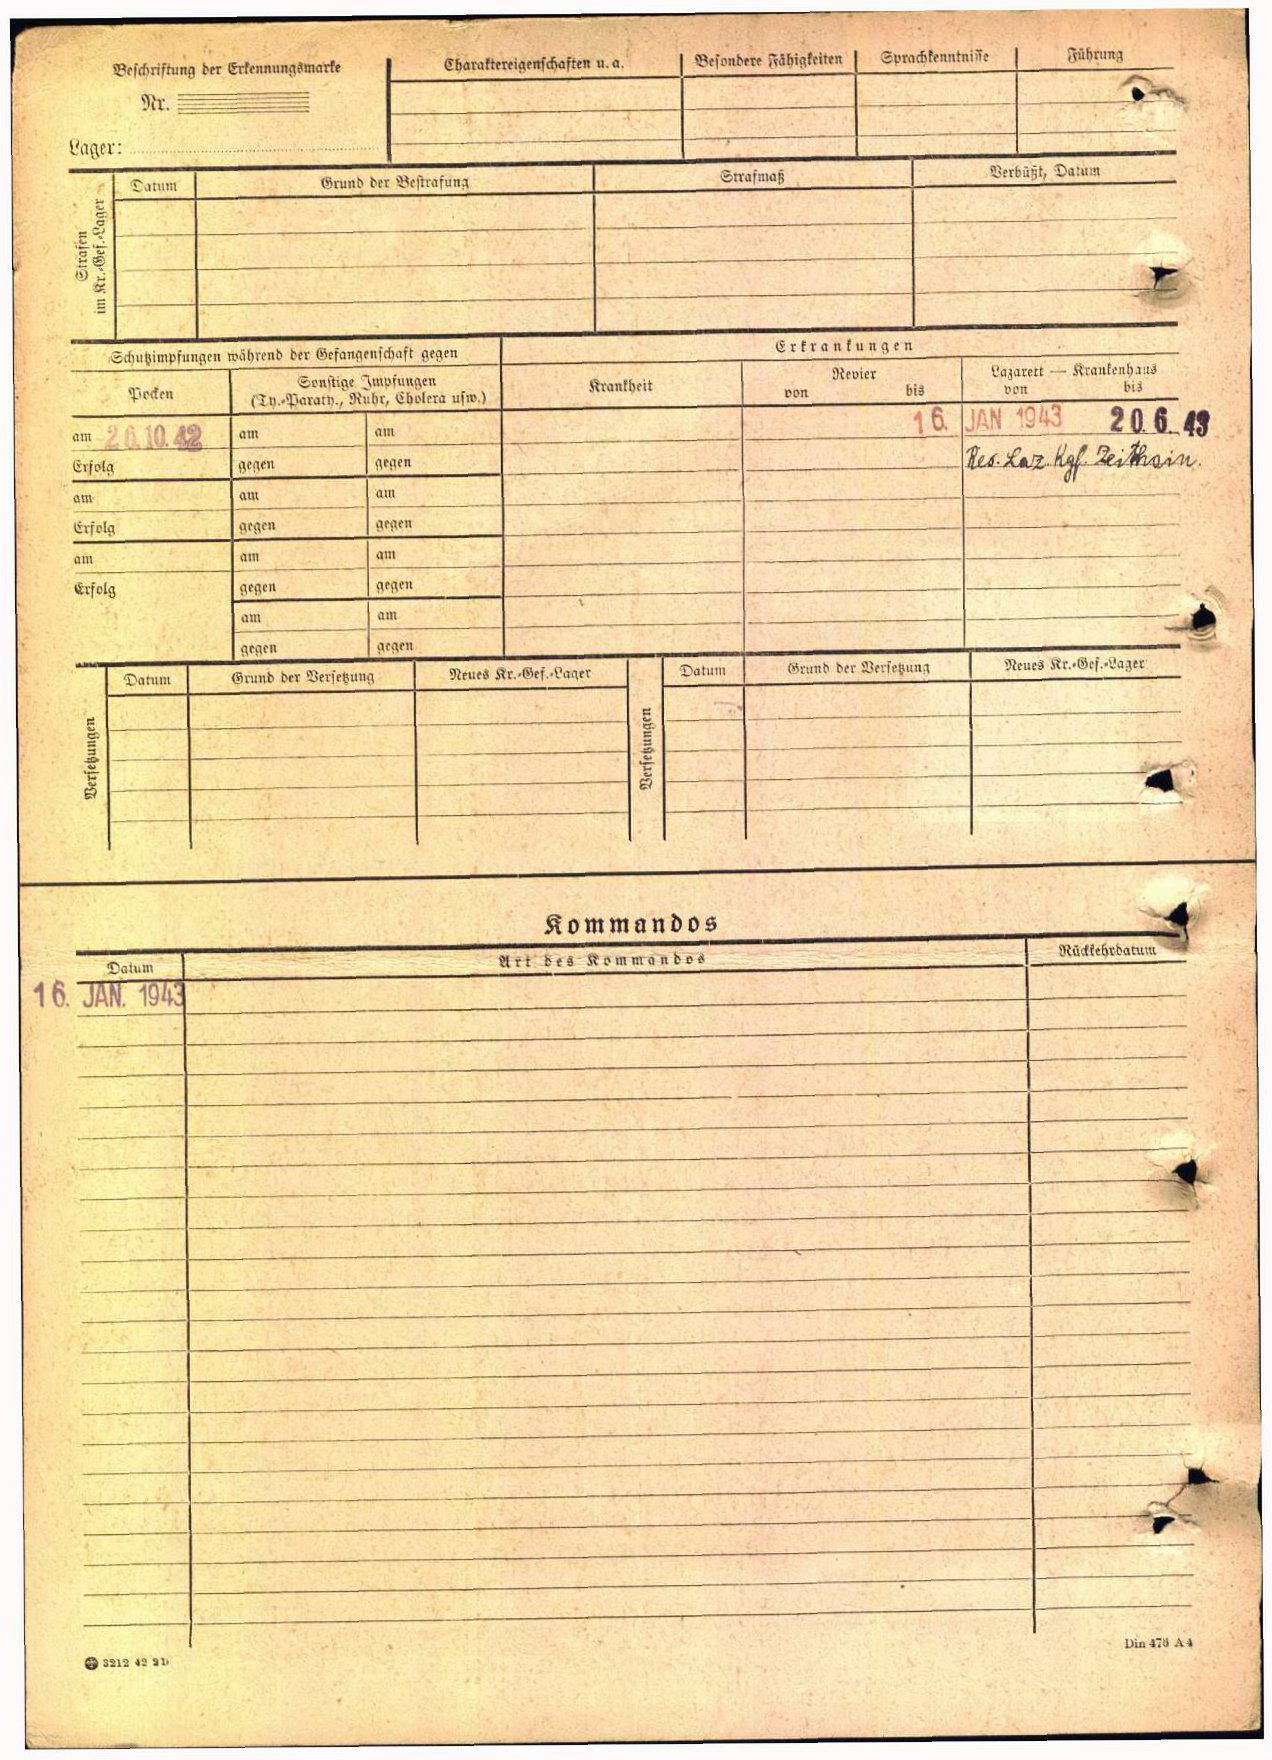 Beschriftung der Erkennungsmarke
Nr.
Lager:
Charaktereigenschaften u. a.
Besondere Fähigkeiten
Sprachkenntnisse
Führung
Strafen
im Kr.-Gef.-Lager
Datum
Grund der Bestrafung
Strafmaß
Verbüßt, Datum
Schutzimpfungen während der Gefangenschaft gegen
Erkrankungen
Pocken
Sonstige Impfungen
(Ty.-Paraty., Ruhr, Cholera usw.)
Krankheit
Revier
von bis
Lazarett — Krankenhaus
von bis
am 26.10.42 am am
16. JAN 1943 20.6.43
Erfolg gegen gegen
Res. Laz. Kgf. Zeithain.
am am am
Erfolg gegen gegen
am am am
Erfolg gegen gegen
am am
gegen gegen
Versetzungen
Datum Grund der Versetzung Neues Kr.-Gef.-Lager
Versetzungen
Datum Grund der Versetzung Neues Kr.-Gef.-Lager
Kommandos
Datum Art des Kommandos Rückkehrdatum
16. JAN. 1943
3212 42 2D
Din 476 A4